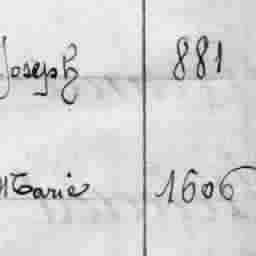 Joseph 881
Marie 1606